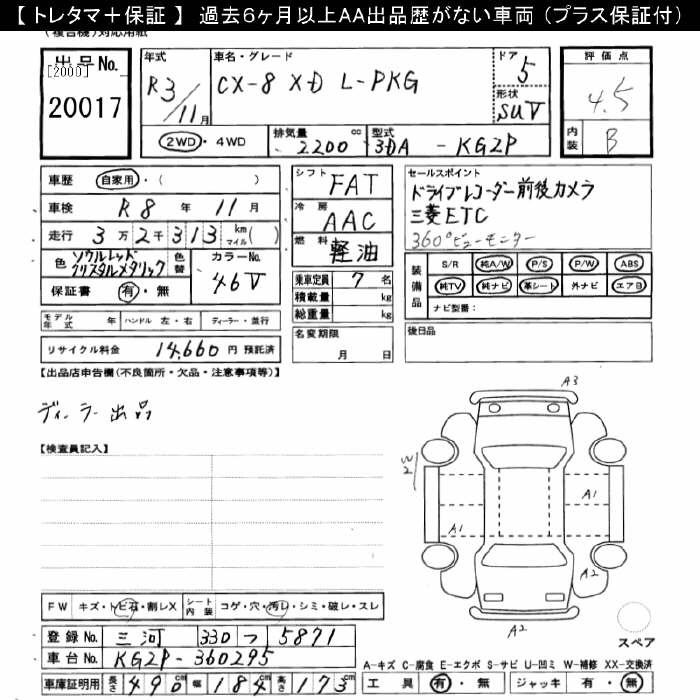 【 トレタマ＋保証 】 過去６ヶ月以上ＡＡ出品歴がない車両（プラス保証付）
(複合機)対応用紙
出品No. [2000] 20017
年式 R3/11月
車名・グレード CX-8 XD L-PKG
ドア 5
形状 SUV
評価点 4.5
内装 B
2WD・4WD 排気量 2200 cc 型式 3DA - KG2P
車歴 自家用・( )
車検 R8 年 11 月
走行 3万2千313 km(マイル)( )
色 ソウルレッドクリスタルメタリック 色替 カラーNo. 46V
保証書 有・無
モデル年式 年 ハンドル 左・右 ディーラー・並行
リサイクル料金 14,660 円 預託済
シフト FAT
冷房 AAC
燃料 軽油
乗車定員 7 名
積載量 kg
総重量 kg
名変期限 月 日
セールスポイント
ドライブレコーダー前後カメラ
三菱ETC
360°ビューモニター
装備品 S/R 純A/W P/S P/W ABS
純TV 純ナビ 革シート 外ナビ エアB
ナビ型番：
後日品
【出品店申告欄(不良箇所・欠品・注意事項等)】
ディーラー出品
【検査員記入】
A3
W2
A1
A1
A2
A2
スペア
FW キズ・トビ石・割レX シート内装 コゲ・穴・汚レ・シミ・破レ・スレ
登録No. 三河 330 つ 5871
車台No. KG2P-360295
車庫証明用 長さ 490cm 幅 184cm 高さ 173cm
A-キズ C-腐食 E-エクボ S-サビ U-凹ミ W-補修 XX-交換済
工具 有・無 ジャッキ 有・無